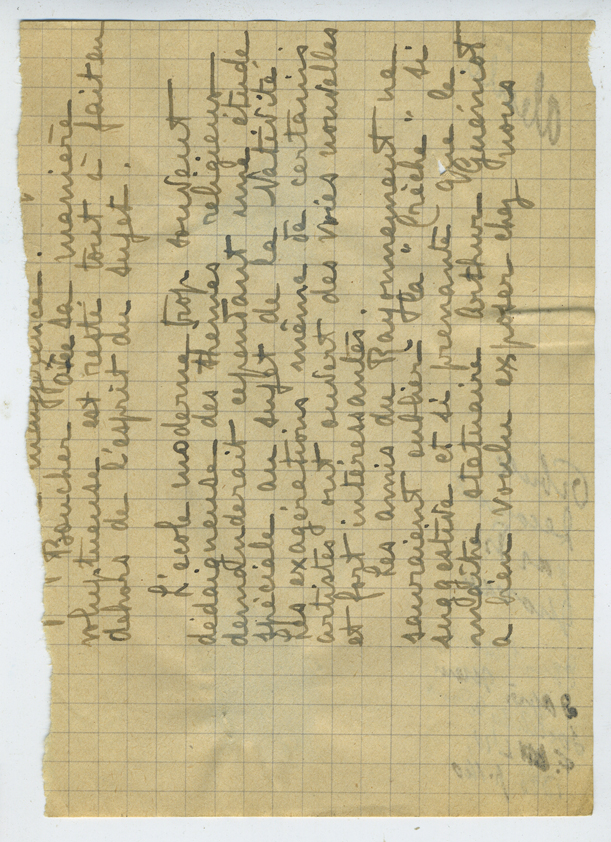 indifférence.
" Boucher avec sa manière
voluptueuse est resté tout à fait en
dehors de l'esprit du sujet.
L'école moderne trop souvent
dédaigneuse des thèmes religieux
demanderait cependant une étude
spéciale au sujet de la Nativité.
Les exagérations même de certains
artistes ont ouvert des voies nouvelles
et fort intéressantes.
Les amis du Rayonnement ne
sauraient oublier "la Crèche" si
suggestive et si prenante que le
maître statuaire Arthur Guéniot
a bien voulu exposer chez nous